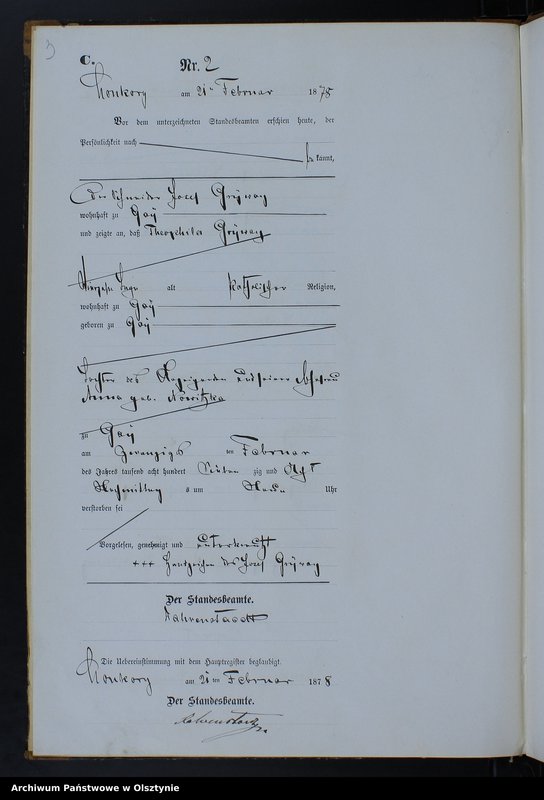 3
C.
Nr. 2
Monkory am 21ten Februar 1878
Vor dem unterzeichneten Standesbeamten erschien heute, der
Persönlichkeit nach
be kannt,
der Schneider Josef
wohnhaft zu Gay
und zeigte an, daß Theophila
alt katholischer Religion,
wohnhaft zu Gay
geboren zu Gay
Tochter des Anzeigenden und seiner Ehefrau
Anna geb. Nowitzka
zu Gay
am ten Februar
des Jahres tausend acht hundert sieben zig und acht
Nachmittag s um Uhr
verstorben sei
Vorgelesen, genehmigt und unterkreuzt
+++ Handzeichen des Josef
Der Standesbeamte.
Die Uebereinstimmung mit dem Hauptregister beglaubigt.
Monkory am 21 ten Februar 1878
Der Standesbeamte.
Archiwum Państwowe w Olsztynie